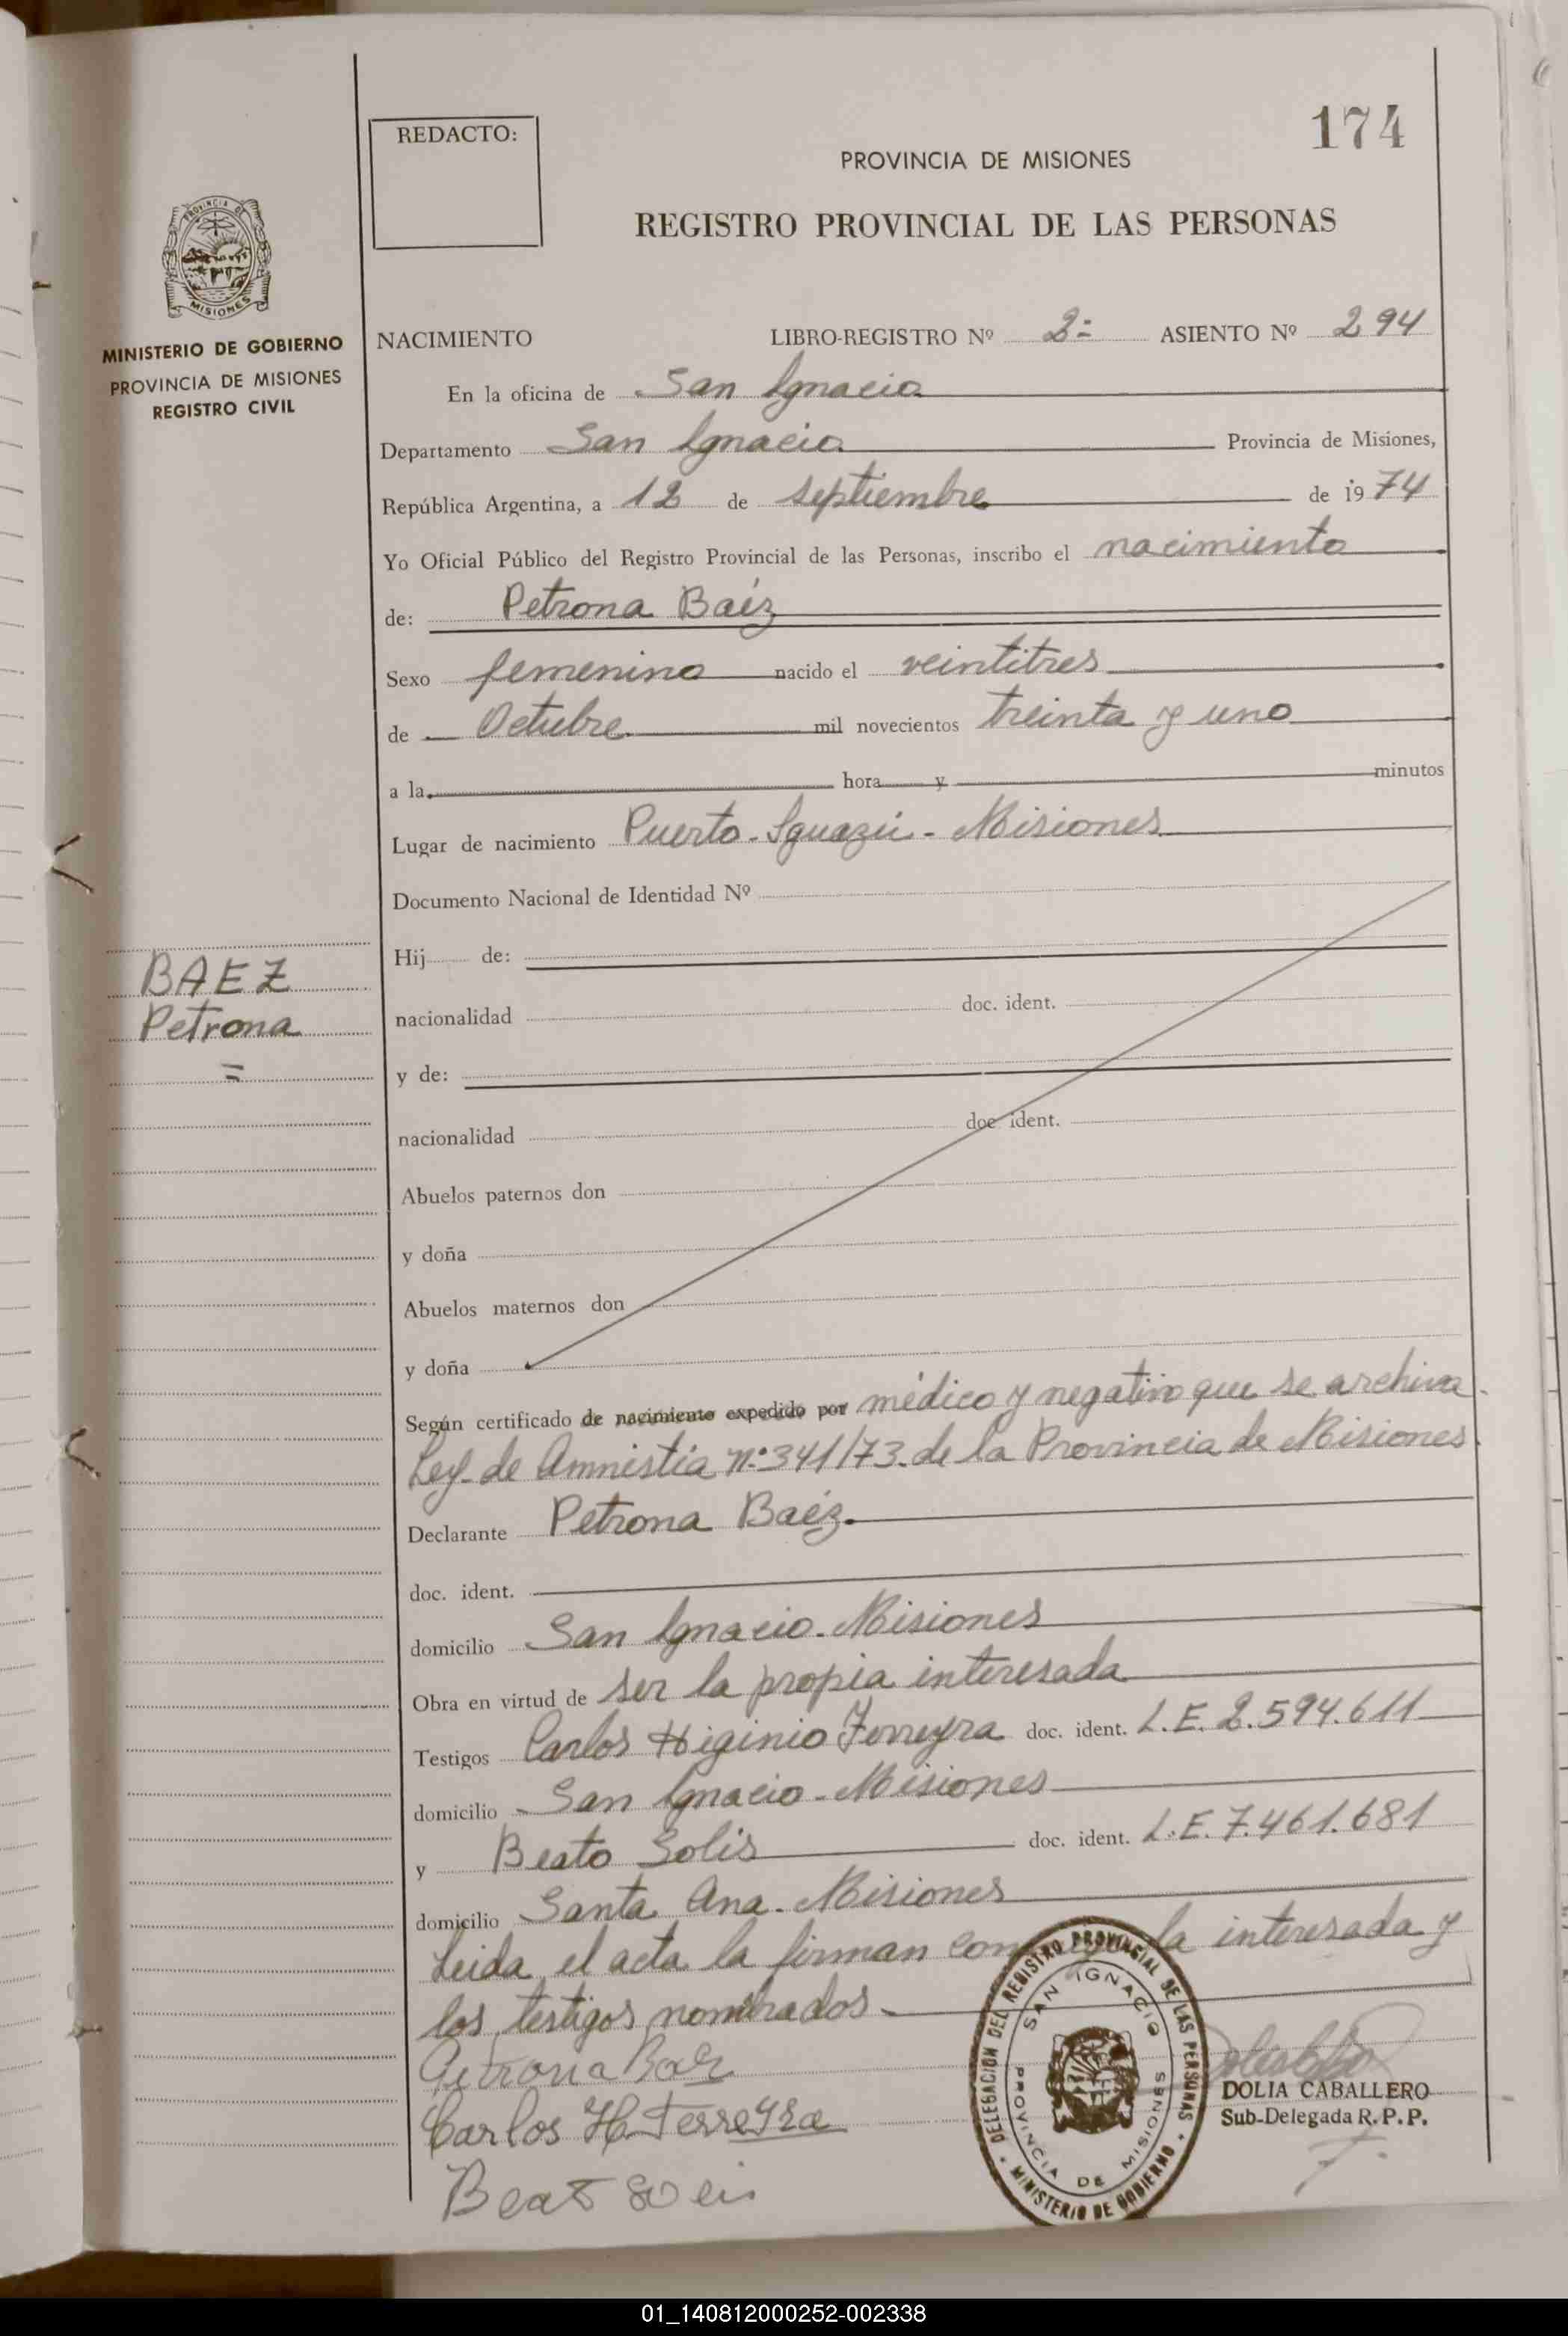 174
REDACTO:
PROVINCIA DE MISIONES
REGISTRO PROVINCIAL DE LAS PERSONAS
PROVINCIA DE
MISIONES
MINISTERIO DE GOBIERNO
PROVINCIA DE MISIONES
REGISTRO CIVIL
NACIMIENTO LIBRO-REGISTRO Nº 2= ASIENTO Nº 294
En la oficina de San Ignacio
Departamento San Ignacio Provincia de Misiones,
República Argentina, a 12 de septiembre de 1974
Yo Oficial Público del Registro Provincial de las Personas, inscribo el nacimiento
de: Petrona Baéz
Sexo femenino nacido el veintitres
de Octubre mil novecientos treinta y uno
a la hora y minutos
Lugar de nacimiento Puerto-Iguazú - Misiones
Documento Nacional de Identidad Nº
Hij de:
BAEZ
Petrona
=
nacionalidad doc. ident.
y de:
nacionalidad doc ident.
Abuelos paternos don
y doña
Abuelos maternos don
y doña
Según certificado de nacimiento expedido por médico y negativo que se archiva.
Ley de Amnistía nº 341/73. de la Provincia de Misiones.
Declarante Petrona Baéz.
doc. ident.
domicilio San Ignacio. Misiones
Obra en virtud de ser la propia interesada
Testigos Carlos Higinio Ferreyra doc. ident. L.E. 2.594.611
domicilio San Ignacio - Misiones
y Beato Solis doc. ident. L.E. 7.461.681
domicilio Santa Ana. Misiones
Leida el acta la firman la interesada y
los testigos nombrados
Petrona Baez
Carlos H. Ferreyra
DELEGACION DEL REGISTRO PROVINCIAL DE LAS PERSONAS
SAN IGNACIO
PROVINCIA DE MISIONES
MINISTERIO DE GOBIERNO
DOLIA CABALLERO
Sub-Delegada R. P. P.
01_140812000252-002338